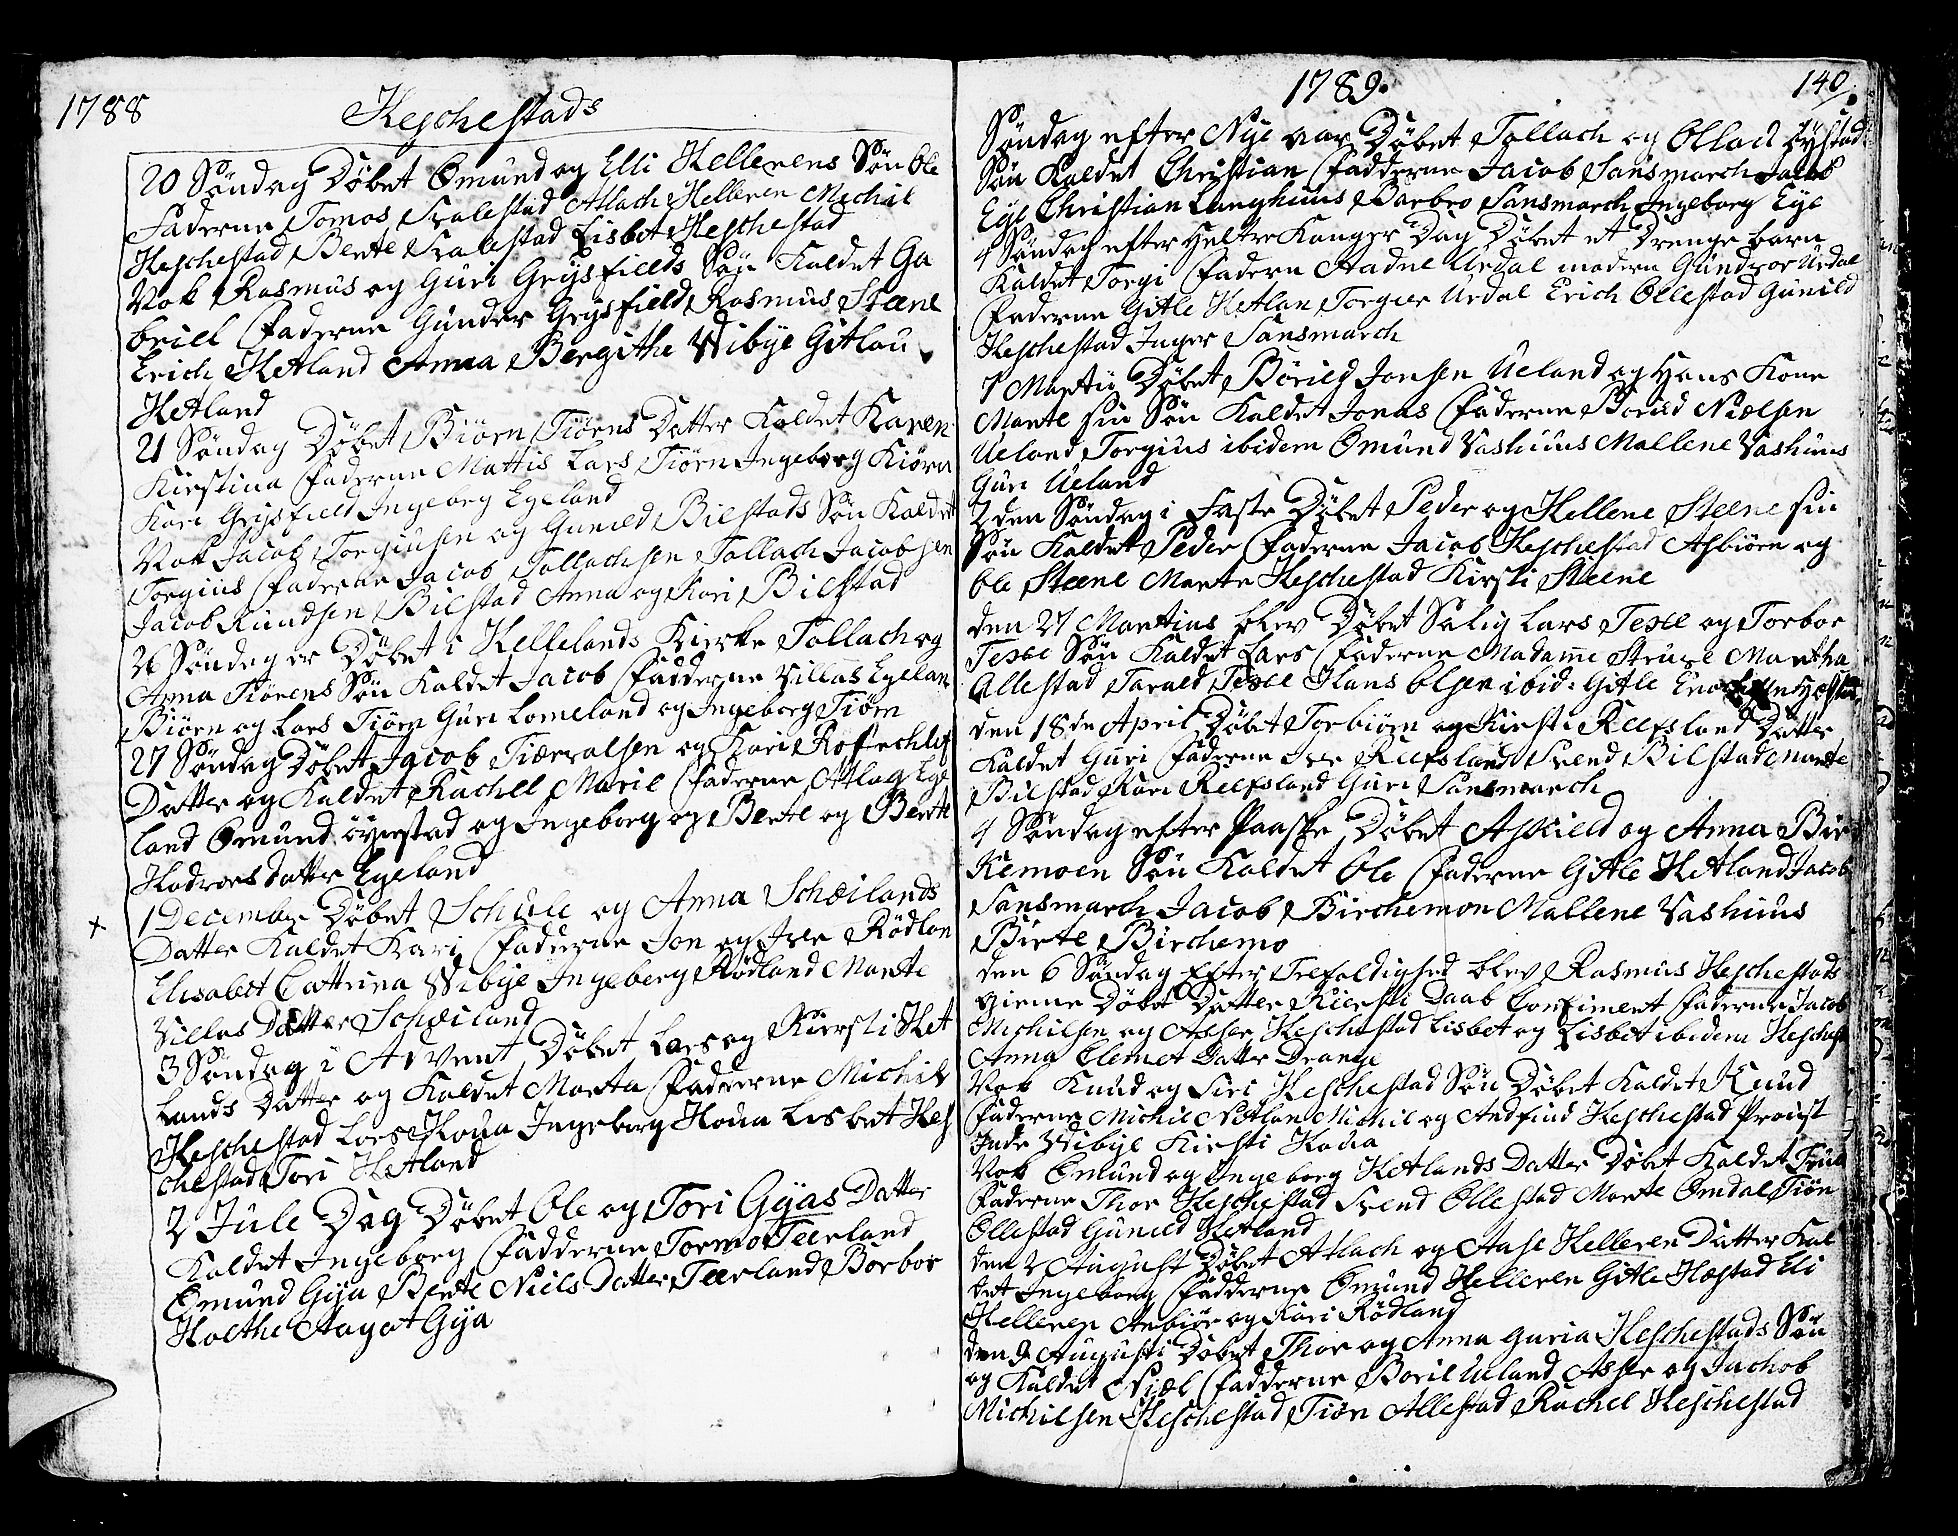 1788
Heschestads
20 Söndag Döbet Ômund og Elli Hellerens Sön Ole
Faderne Tomas Svalestad Atlach Helleren Michil
Heschestad Bente Svalestad Lisbet Heschestad
Nok Rasmus og Guri Grÿsfields Sön Kaldet Ga
briel Faderne Gunder Grÿsfield Rasmus Steene
Erich Hetland Anna Bergithe Wibÿe Gitlau
Hetland
21 Söndag Döbet Biörn Tiörns Datter Kaldet Karen
Kirstina Faderne Mattis Lars Tiörn Ingeborg Kiörn
Kari Grÿsfield Ingeborg Egeland
Nok Jacob Torgiusen og Gunild Bilstads Sön Kaldet
Torgius Faderne Jacob Tollachsen Tollach Jacobsen
Jacob Knudsen Bilstad Anna og Kari Bilstad
26 Söndag er Döbet i Hellelands Kierke Tollach og
Anna Tiörens Sön Kaldet Jacob Fadderne Villas Egelan
Biörn og Lars Tiörn Guri Lomeland og Ingeborg Tiörn
27 Söndag Döbet Jacob og Kari
Datter og Kaldet Rachel Marie Faderne Atlag Ege
land Ômund öÿrestad og Ingeborg og Bente og Bente
Hadroes datter Egeland
1 December Döbet Schule og Anna Schœilands
Datter Kaldet Kari Faderne Jon og Iver Rödlan
Elisabet Cattrina Wibÿe Ingeberg Rödland Marte
Villas Datter Schœiland
3 Söndag i Advent Döbet Lars og Kiersti Het
lands Datter og Kaldet Marta Fadderne Michil
Heschestad Lars Hova Ingeborg Hova Lisbet Hes
chestad Tori Hetland
2 Jule Dag Döbet Ole og Tori Gÿas Datter
Kaldet Ingeborg Fadderne Tormo Teerland
Ômund Gÿa Bente Niels Datter Teerland Barbor
Holthe Aagot Gÿa
1789.
140.
Söndag efter Nÿe aar Döbet Tollach og Ollau
Sön Kaldet Christian Fadderne Jacob Sansmarch Jacob
Ege Christian Langhuus Barbro Sansmarch Ingeborg Ege
4 Söndag efter Heltre Kanger Dag Döbet et Drenge barn
Kaldet Torgi Fadern Aadne Urdal modern Gundvor Urdal
Faderne Gitle Hetlan Torgier Urdal Erich Ollestad Gunild
Heschestad Inger Sansmarch
7 Martii Döbet Börild Jonsen Ueland og Hans Kone
Marte sin Sön Kaldet Jonas Faderne Borild Nielsen
Ueland Torgius ibidem Ômund Vashuus Mallene Vashuus
Guri Ueland
2den Söndag i Faste Döbet Peder og Hellene Steene sin
Sön Kaldet Peder Faderne Jacob Heschestad Asbiörn og
Ole Steene Marte Heschestad Kirsti Steene
den 27 Martius blev Döbet Salig Lars Texe og Torbor
Texe Sön Kaldet Lars Faderne Madame Martha
Allestad Tarald Texe Hans Olsen ibid: Gitle
den 18de April Döbet Torbiörn og Kirsti Reefsland Datter
Kaldet Guri Faderne Iver Reefsland Svend Bilstad Marte
Bilstad Kari Reefsland Guri Sansmarch
4 Söndag efter Paaske Döbet Askield og Anna Bir
Kemoen Sön Kaldet Ole Faderne Gitle Hetland Jacob
Sansmarch Jacob Birchemon Mallene Vashuus
Birte Birchemo
den 6 Söndag Efter Trefoldighed blev Rasmus Heschestads
Hieme Döbte Datter Kiersti Daab Confiment Faderne Jacob
Michilsen og Asser Heschestad Lisbet og Lisbet ibidem Heschest
Anna Clemet Datter Drange
Nok Knud og Siri Heschestad Sön Döbet Kaldet Knud
Faderne Michil Michil og Andfind Heschestad Provst
Inde Wibÿe Kirsti Hova
Nok Ômund og Ingeborg Hetlands Datter Döbt Kaldet
Faderne Thor Heschestad Svend Ollestad Marte Ômdal Tiön
Ollestad Gunild Hetland
den 2 August Döbet Atlach og Aase Helleren Datter Kal
det Ingeborg Fadderne Ômund Helleren Gitle Hœstad Eli
Helleren Anbiör og Kari Rödland
den 9 Augusti Döbet Thor og Anna Guria Heschestads Sön
og Kaldet Niœl Fadderne Boril Ueland Asser og Jachob
Michilsen Heschestad Tiön Allestad Rachel Heschestad